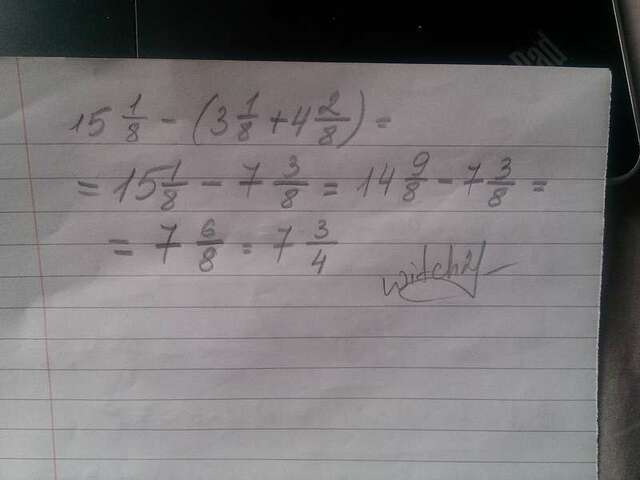 15 1/8 - (3 1/8 + 4 2/8) =
= 15 1/8 - 7 3/8 = 14 9/8 - 7 3/8 =
= 7 6/8 = 7 3/4
Pad